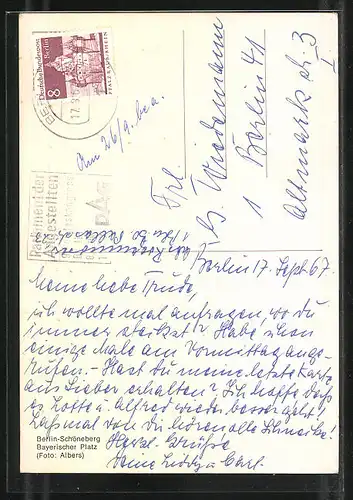 Deutsche Bundespost
Berlin
8
PFALZ KAUB/RHEIN
17.9.
Am 26/9. bea.
Frl.
G. Wiedemann
1 Berlin 41
Altmarkstr. 3
I
Parlament der
Angestellten
DAG
Berlin 17. Sept. 67.
Meine liebe Trude,
ich wollte mal anfragen, wo du
immer steckst? Habe schon
einige Male am Vormittag ange-
rufen. - Hast du meine letzte Karte
aus Lieber erhalten? Ich hoffe daß
es Lotte u. Alfred wieder besser geht!
Laß mal von dir hören, alle Schreibe!
Herzl. Grüße
Deine u. Carl.
Berlin-Schöneberg
Bayerischer Platz
(Foto: Albers)